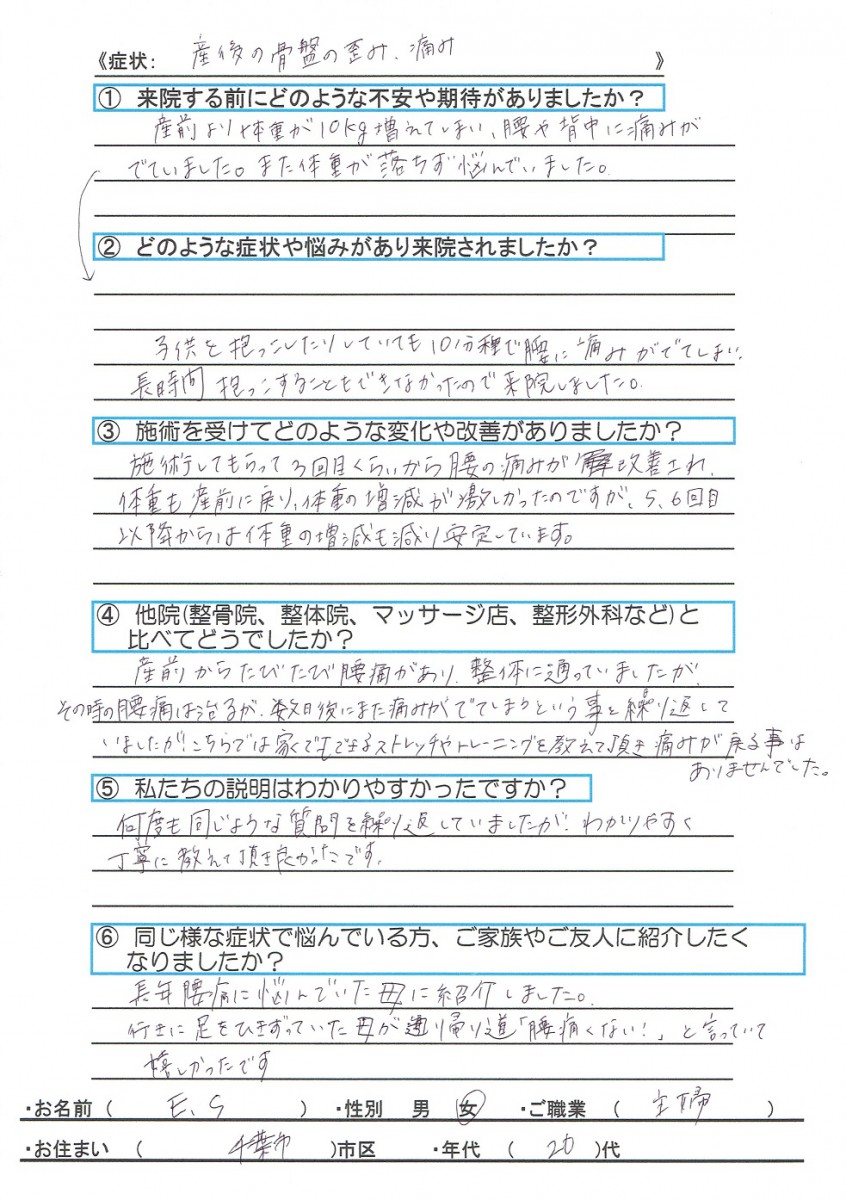 《症状: 産後の骨盤の歪み、痛み 》
① 来院する前にどのような不安や期待がありましたか？
産前より体重が10kg増えてしまい、腰や背中に痛みが
でていました。また体重が落ちず悩んでいました。
② どのような症状や悩みがあり来院されましたか？
子供を抱っこしたりしていても10分程で腰に痛みがでてしまい、
長時間抱っこすることもできなかったので来院しました。
③ 施術を受けてどのような変化や改善がありましたか？
施術してもらって3回目くらいから腰の痛みが改善され、
体重も産前に戻り、体重の増減が激しかったのですが、5、6回目
以降からは体重の増減も減り安定しています。
④ 他院(整骨院、整体院、マッサージ店、整形外科など)と
比べてどうでしたか？
産前からたびたび腰痛があり、整体に通っていましたが、
その時の腰痛は治るが、数日後にまた痛みがでてしまうという事を繰り返して
いましたが、こちらでは家でもできるストレッチやトレーニングを教えて頂き痛みが戻る事は
ありませんでした。
⑤ 私たちの説明はわかりやすかったですか？
何度も同じような質問を繰り返していましたが、わかりやすく
丁寧に教えて頂き良かったです。
⑥ 同じ様な症状で悩んでいる方、ご家族やご友人に紹介したく
なりましたか？
長年腰痛に悩んでいた母に紹介しました。
行きに足をひきずっていた母が帰り道「腰痛くない！」と言っていて
嬉しかったです
・お名前 ( E.S ) ・性別 男 女 ・ご職業 ( 主婦 )
・お住まい ( 千葉市 )市区 ・年代 ( 20 )代